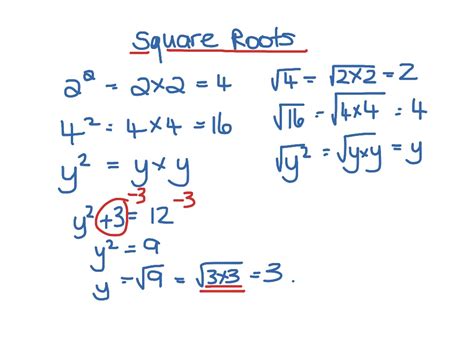 Square Roots
2² = 2×2 = 4
4² = 4×4 = 16
y² = y×y
y² +3 = 12
-3 -3
y² = 9
y = √9 = √3×3 = 3.
√4 = √2×2 = 2
√16 = √4×4 = 4
√y² = √y×y = y